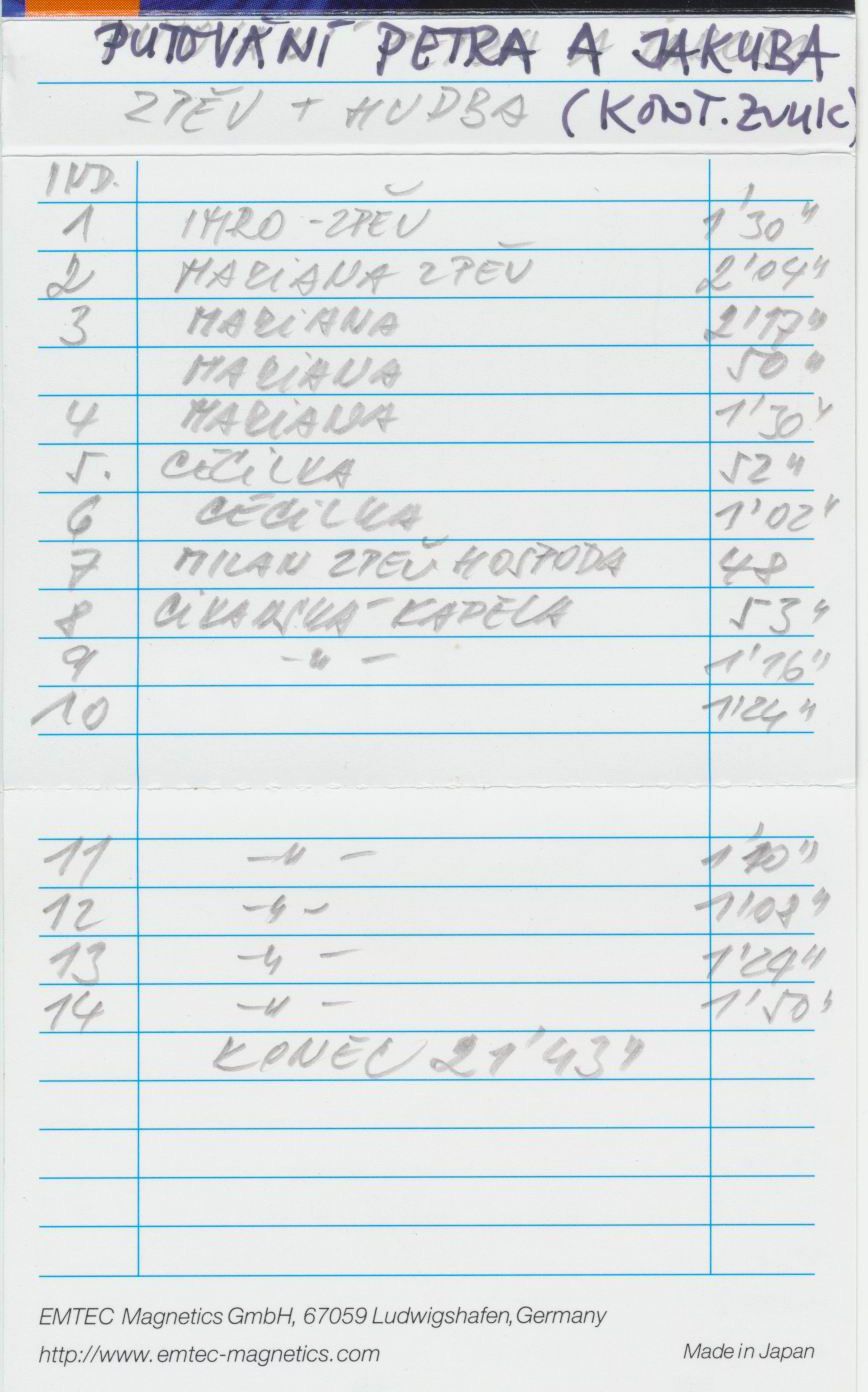 PUTOVÁNÍ PETRA A JAKUBA
ZPĚV + HUDBA (KONT. ZVUK)
IND.
1 IMRO - ZPĚV 1'30"
2 MARIANA ZPĚV 2'04"
3 MARIANA 2'17"
MARIANA 50"
4 MARIANA 1'30"
5. CÉCILKA 52"
6 CÉCILKA 1'02"
7 MILAN ZPĚV HOSPODA 48
8 CIKANSKÁ KAPELA 53"
9 -"- 1'16"
10 1'24"
11 -"- 1'10"
12 -"- 1'08"
13 -"- 1'29"
14 -"- 1'50"
KONEC 21'43"
EMTEC Magnetics GmbH, 67059 Ludwigshafen, Germany
http://www.emtec-magnetics.com Made in Japan